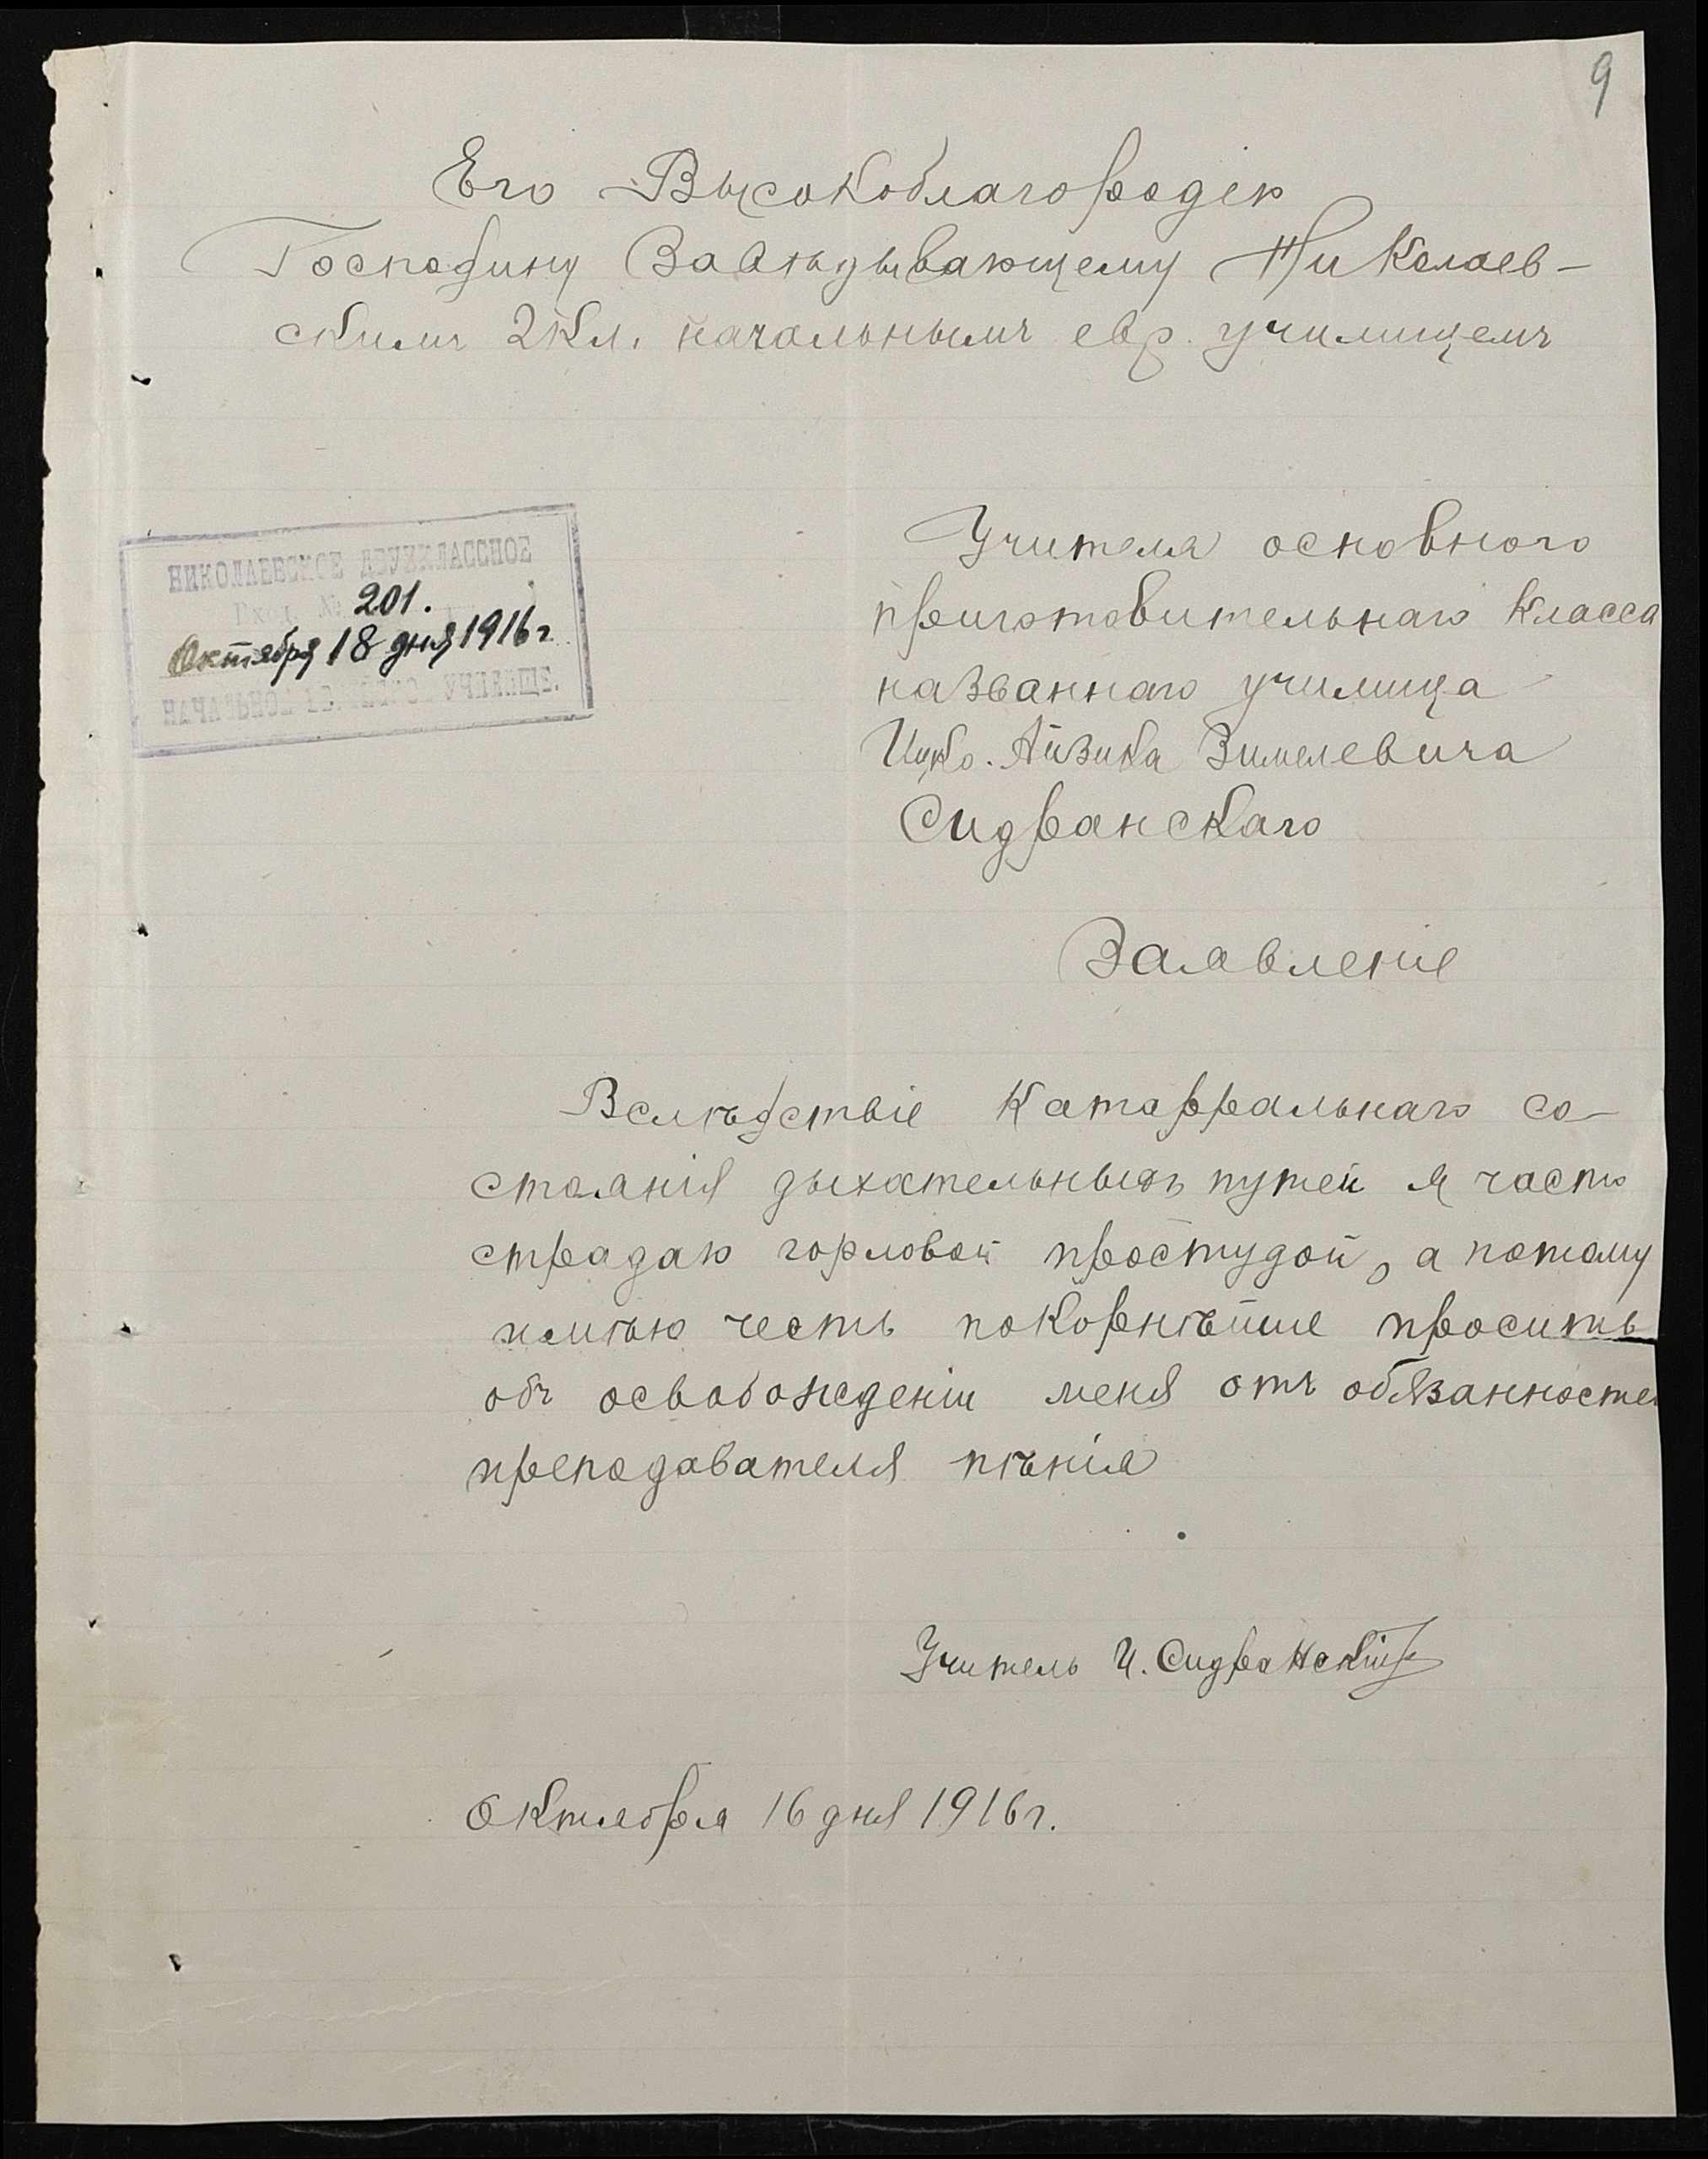 9
Его Высокоблагородію
Господину Завѣдывающему Николаев-
скимъ 2кл. начальнымъ евр. училищемъ
НИКОЛАЕВСКОЕ ДВУХКЛАССНОЕ
Вход. № 201.
Октября 18 дня 1916 г.
НАЧАЛЬНОЕ ЕВРЕЙСКОЕ УЧИЛИЩЕ.
Учителя основного
приготовительнаго класса
названнаго училища
Ицко-Айзика Зимелевича
Сидранскаго
Заявленіе
Вслѣдствіе катарральнаго со-
стоянія дыхательныхъ путей я часто
страдаю горловой простудой, а потому
имѣю честь покорнѣйше просить
объ освобожденіи меня отъ обязанностей
преподавателя пѣнія
Учитель И. Сидранскій
Октября 16 дня 1916г.